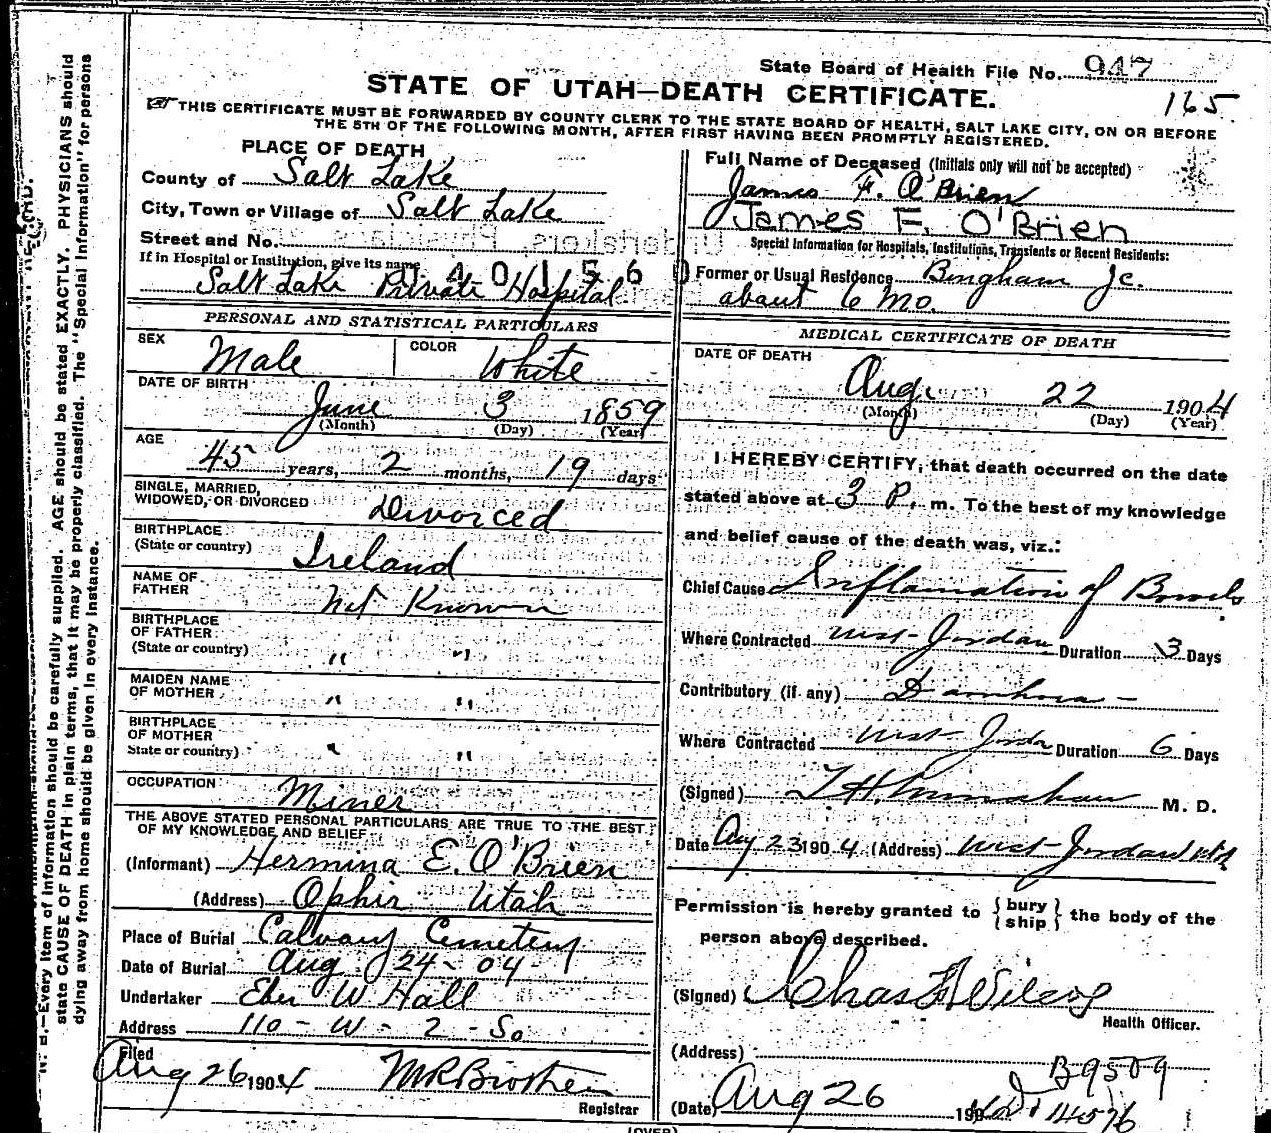 State Board of Health File No. 947
165
STATE OF UTAH—DEATH CERTIFICATE.
THIS CERTIFICATE MUST BE FORWARDED BY COUNTY CLERK TO THE STATE BOARD OF HEALTH, SALT LAKE CITY, ON OR BEFORE
THE 5TH OF THE FOLLOWING MONTH, AFTER FIRST HAVING BEEN PROMPTLY REGISTERED.
PLACE OF DEATH
County of Salt Lake
City, Town or Village of Salt Lake
Street and No.
If in Hospital or Institution, give its name
Salt Lake Private Hospital
Full Name of Deceased (Initials only will not be accepted)
James F. O'Brien
James F. O'Brien
Special Information for Hospitals, Institutions, Transients or Recent Residents:
Former or Usual Residence Bingham Jc.
about 6 Mo.
PERSONAL AND STATISTICAL PARTICULARS
SEX Male COLOR White
DATE OF BIRTH
June 3 1859
(Month) (Day) (Year)
AGE
45 years, 2 months, 19 days
SINGLE, MARRIED,
WIDOWED, OR DIVORCED Divorced
BIRTHPLACE
(State or country) Ireland
NAME OF
FATHER Not Known
BIRTHPLACE
OF FATHER
(State or country) " "
MAIDEN NAME
OF MOTHER " "
BIRTHPLACE
OF MOTHER
State or country) " "
OCCUPATION Miner
THE ABOVE STATED PERSONAL PARTICULARS ARE TRUE TO THE BEST
OF MY KNOWLEDGE AND BELIEF
(Informant) Hermina E. O'Brien
(Address) Ophir Utah
Place of Burial Calvary Cemetery
Date of Burial Aug 24 - 04
Undertaker Eber W Hall
Address 110 - W - 2 - So
Filed
Aug 26 1904
Registrar
MEDICAL CERTIFICATE OF DEATH
DATE OF DEATH
Aug. 22 1904
(Month) (Day) (Year)
I HEREBY CERTIFY, that death occurred on the date
stated above at 3 P. m. To the best of my knowledge
and belief cause of the death was, viz.:
Chief Cause Inflamation of Bowels
Where Contracted West-Jordan Duration 3 Days
Contributory (if any)
Where Contracted West-Jordan Duration 6 Days
(Signed) M. D.
Date Aug 23 1904 (Address) West-Jordan Utah
Permission is hereby granted to { bury ship } the body of the
person above described.
(Signed) Chas Wilcox
Health Officer.
(Address)
B9509
(Date) Aug 26 190
(OVER)
N. B.—Every item of information should be carefully supplied. AGE should be stated EXACTLY. PHYSICIANS should
state CAUSE OF DEATH in plain terms, that it may be properly classified. The "Special Information" for persons
dying away from home should be given in every instance.